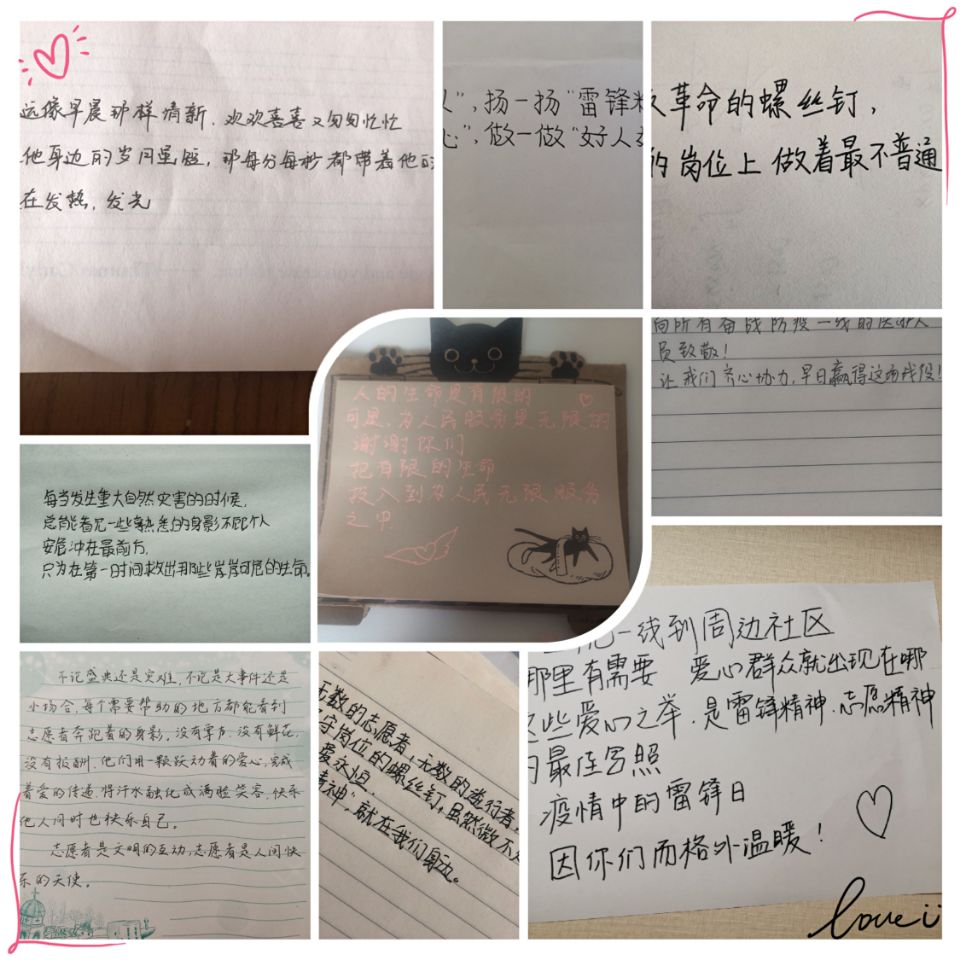 远像早晨那样清新，欢欢喜喜又匆匆忙忙
他身边的岁月虽短，那每分每秒都带着他的
在发热，发光
"，扬一扬"雷锋精
心"，做一做"好人
革命的螺丝钉，
的岗位上做着最不普通
向所有奋战防疫一线的医护人
员致敬！
让我们齐心协力，早日赢得这场战役！
人的生命是有限的
可是，为人民服务是无限的
谢谢你们
把有限的生命
投入到为人民无限服务
之中
每当发生重大自然灾害的时候，
总能看见一些熟悉的身影不顾个人
安危冲在最前方，
只为在第一时间救出那些岌岌可危的生命。
不论盛典还是灾难，不论是大事件还是
小场合，每个需要帮助的地方都能看到
志愿者奔跑着的身影，没有掌声，没有鲜花，
没有报酬，他们用一颗跃动着的爱心，完成
着爱的传递，将汗水融化成满脸笑容，快乐
他人同时也快乐自己。
志愿者是文明的互动，志愿者是人间快
乐的天使。
无数的志愿者，无数的逆行者，
守岗位的螺丝钉，虽然微不
爱永恒。
精神"，就在我们身边。
一线到周边社区
那里有需要 爱心群众就出现在哪
这些爱心之举，是雷锋精神、志愿精神
的最佳写照
疫情中的雷锋日
因你们而格外温暖！
love